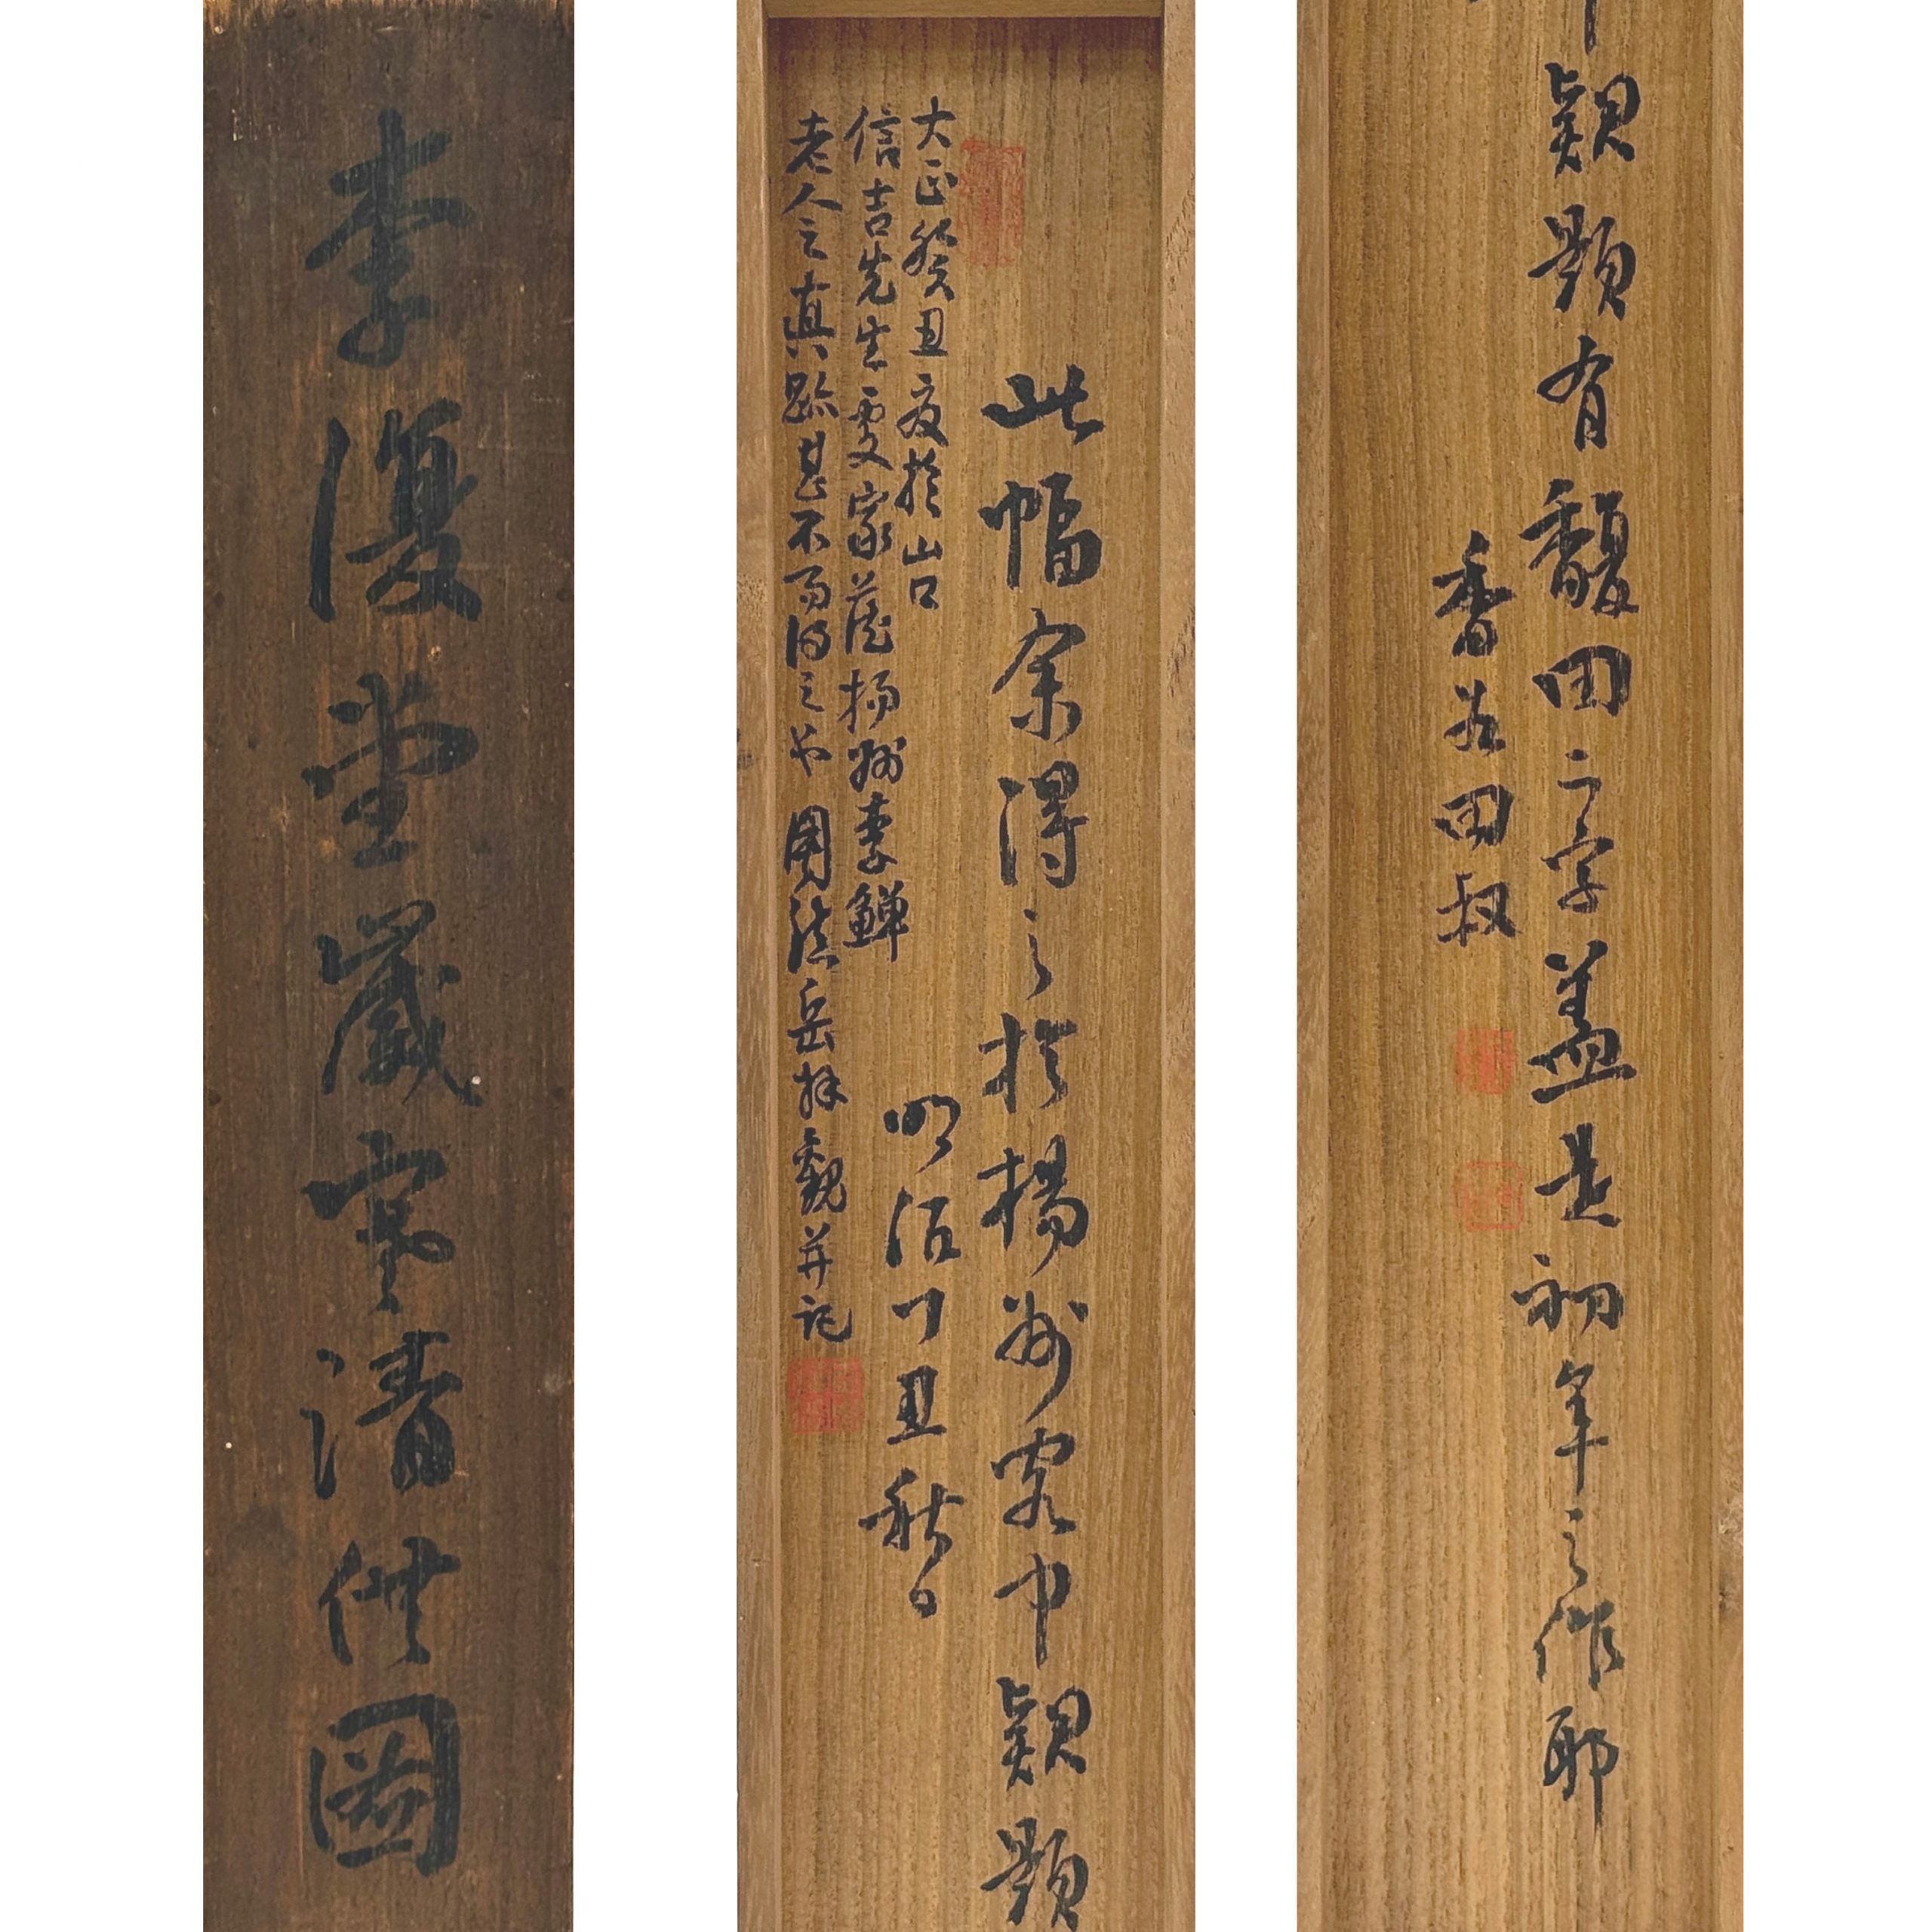 李復堂歲寒清供圖
此幅余得之於揚州客中款題
明治丁丑秋日
大正癸丑夏於山口
信吉先生雯家蔵揚州李鱓
老人之真跡甚不可得之也 園 岳拝観并記
款題有馥田二字蓋是初年之作耶
香 田叔